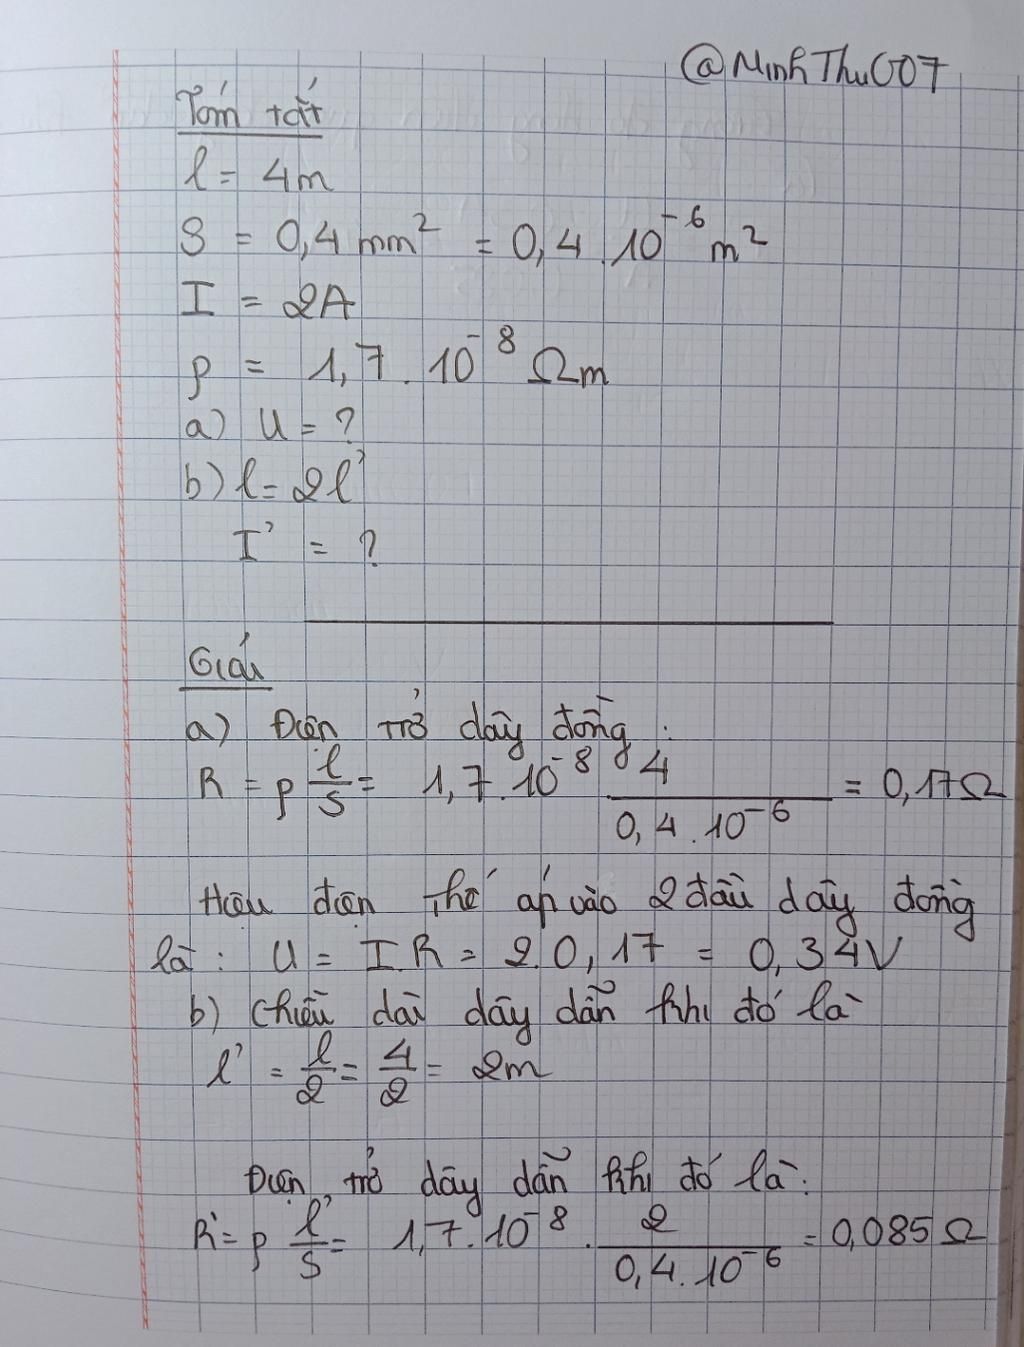 @MinhThu007
Tóm tắt
l = 4m
S = 0,4 mm² = 0,4 . 10⁻⁶ m²
I = 2A
ρ = 1,7 . 10⁻⁸ Ωm
a) U = ?
b) l = 2l'
I' = ?
Giải
a) Điện trở dây đồng :
R = ρ l/S = 1,7 . 10⁻⁸ . 4/(0,4 . 10⁻⁶) = 0,17Ω
Hiệu điện thế áp vào 2 đầu dây đồng
là : U = I.R = 2.0,17 = 0,34V
b) Chiều dài dây dẫn khi đó là
l' = l/2 = 4/2 = 2m
Điện trở dây dẫn khi đó là :
R' = ρ l'/S = 1,7 . 10⁻⁸ . 2/(0,4 . 10⁻⁶) = 0,085 Ω